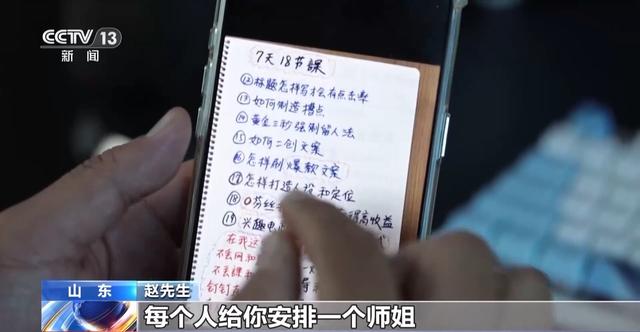 CCTV 13
新闻
7天 18节課
⑫标题怎样写才会有点击率
⑬如何制造槽点
⑭黄金三秒强制留人法
⑮如何二创文案
⑯怎样刷爆款文案
⑰怎样打造人设和定位
⑱0芬丝 得高收益
⑲兴趣电
在我这
不丢网
不丢
钉钉
山东 赵先生
每个人给你安排一个师姐